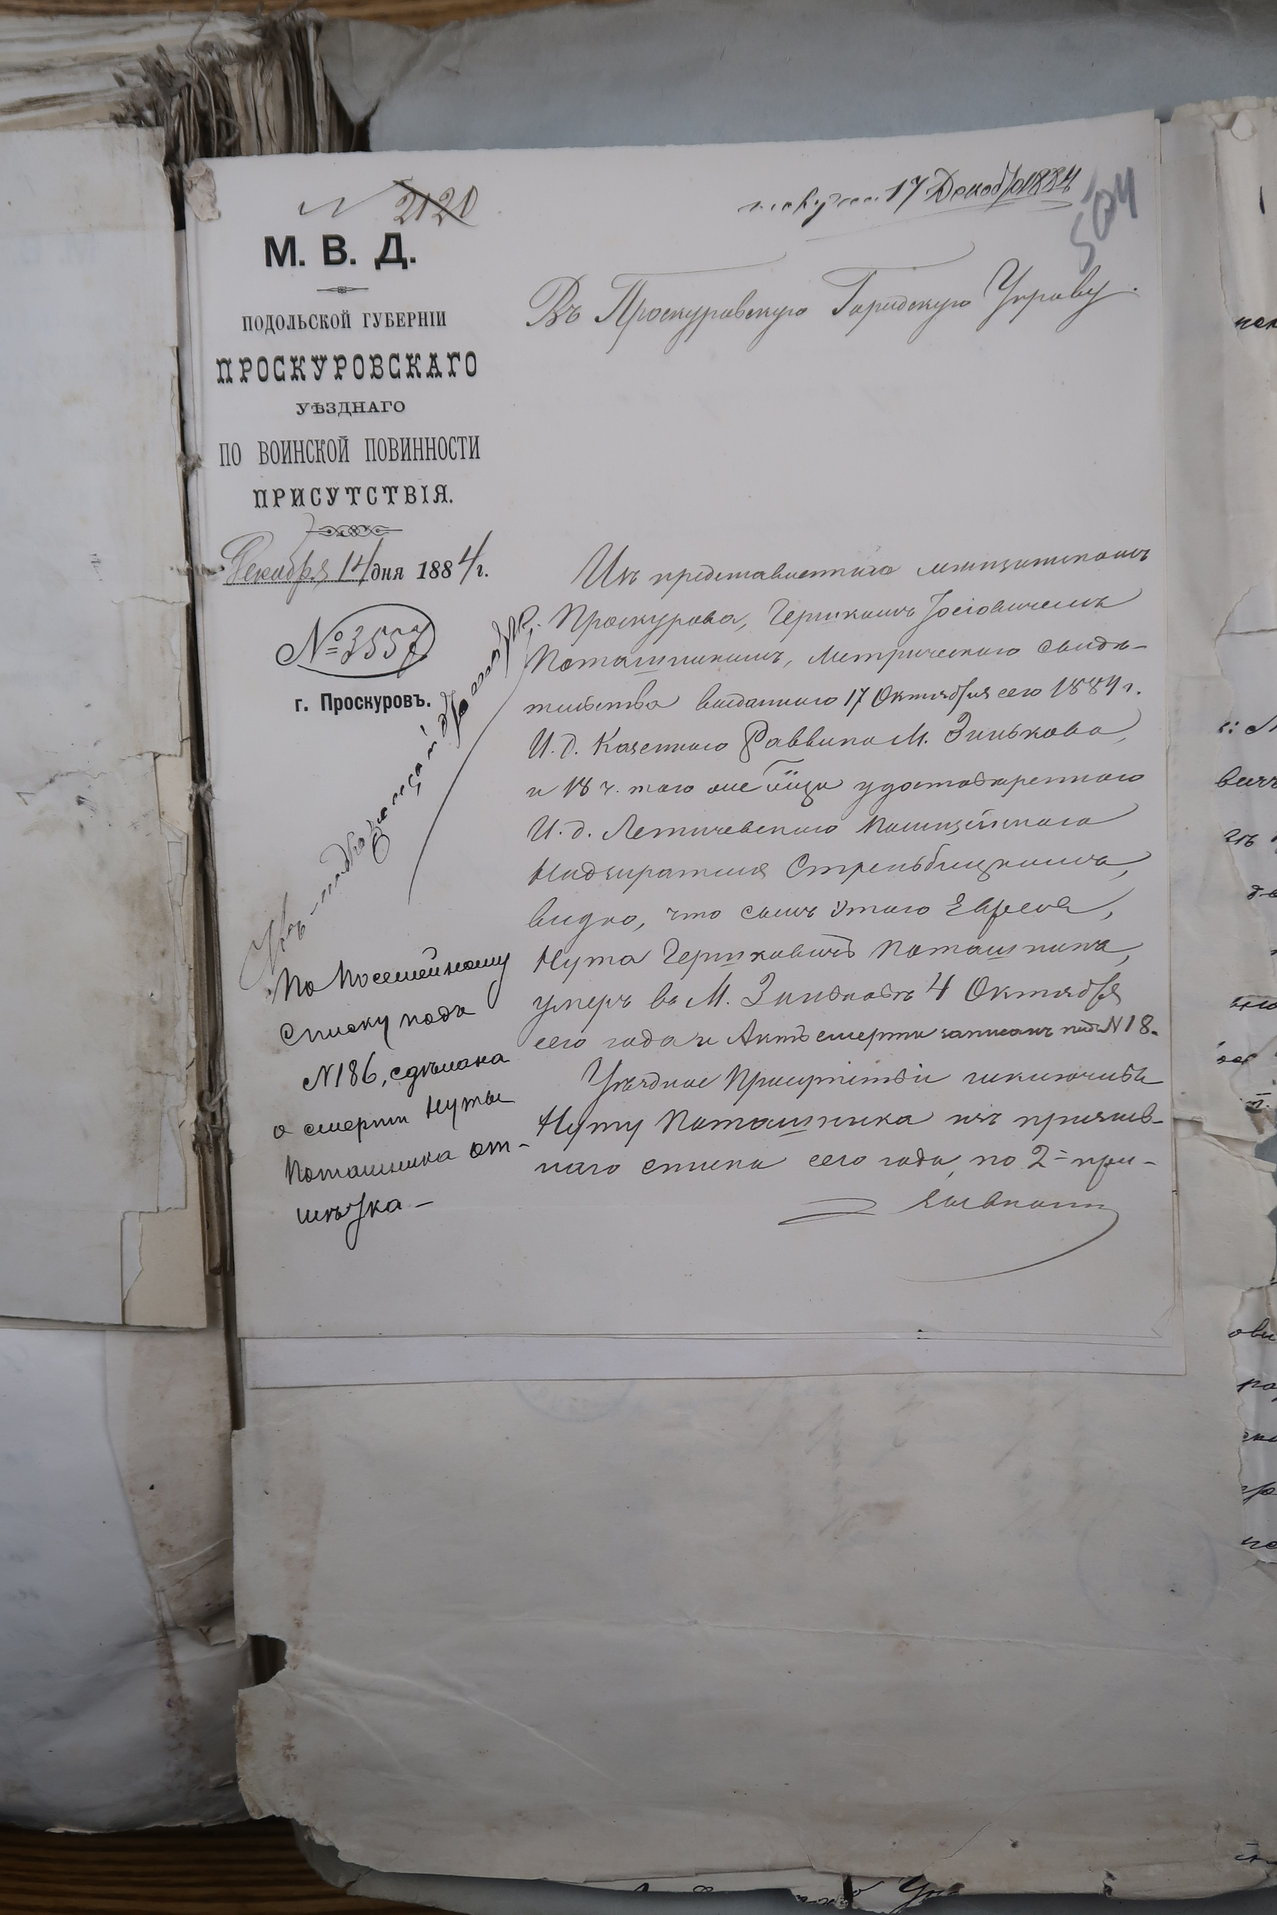 N 2120
получ. 17 Декабр 1884
504
М. В. Д.
ПОДОЛЬСКОЙ ГУБЕРНІИ
ПРОСКУРОВСКАГО
УѢЗДНАГО
ПО ВОИНСКОЙ ПОВИННОСТИ
ПРИСУТСТВІЯ.
Декабря 14 дня 1884 г.
№ 3557
г. Проскуровъ.
Въ Проскуровскую Городскую Управу.
Изъ представленнаго мѣщаниномъ
Проскурова, Гершкомъ Іосіовичемъ
Поташникомъ, Метрическаго свидѣ-
тельства выданнаго 17 Октября сего 1884 г.
И. д. Казеннаго Раввина М. Зинькова,
и 18 ч. того же удостовѣреннаго
И. д. Летичевскаго Полицейскаго
Надзирателя Стрельбицкимъ,
видно, что сынъ этаго Еврея,
Нута Гершковичъ Поташникъ,
умеръ въ М. Зиньковѣ 4 Октября
сего года и Актъ смерти записанъ подъ N 18.
Уѣздное Присутствіе исключивъ
Нуту Поташника изъ призыв-
наго списка сего года, по 2 = при-
По Посемейному
списку подъ
N 186, сдѣлана
о смерти Нуты
Поташника от-
мѣтка –